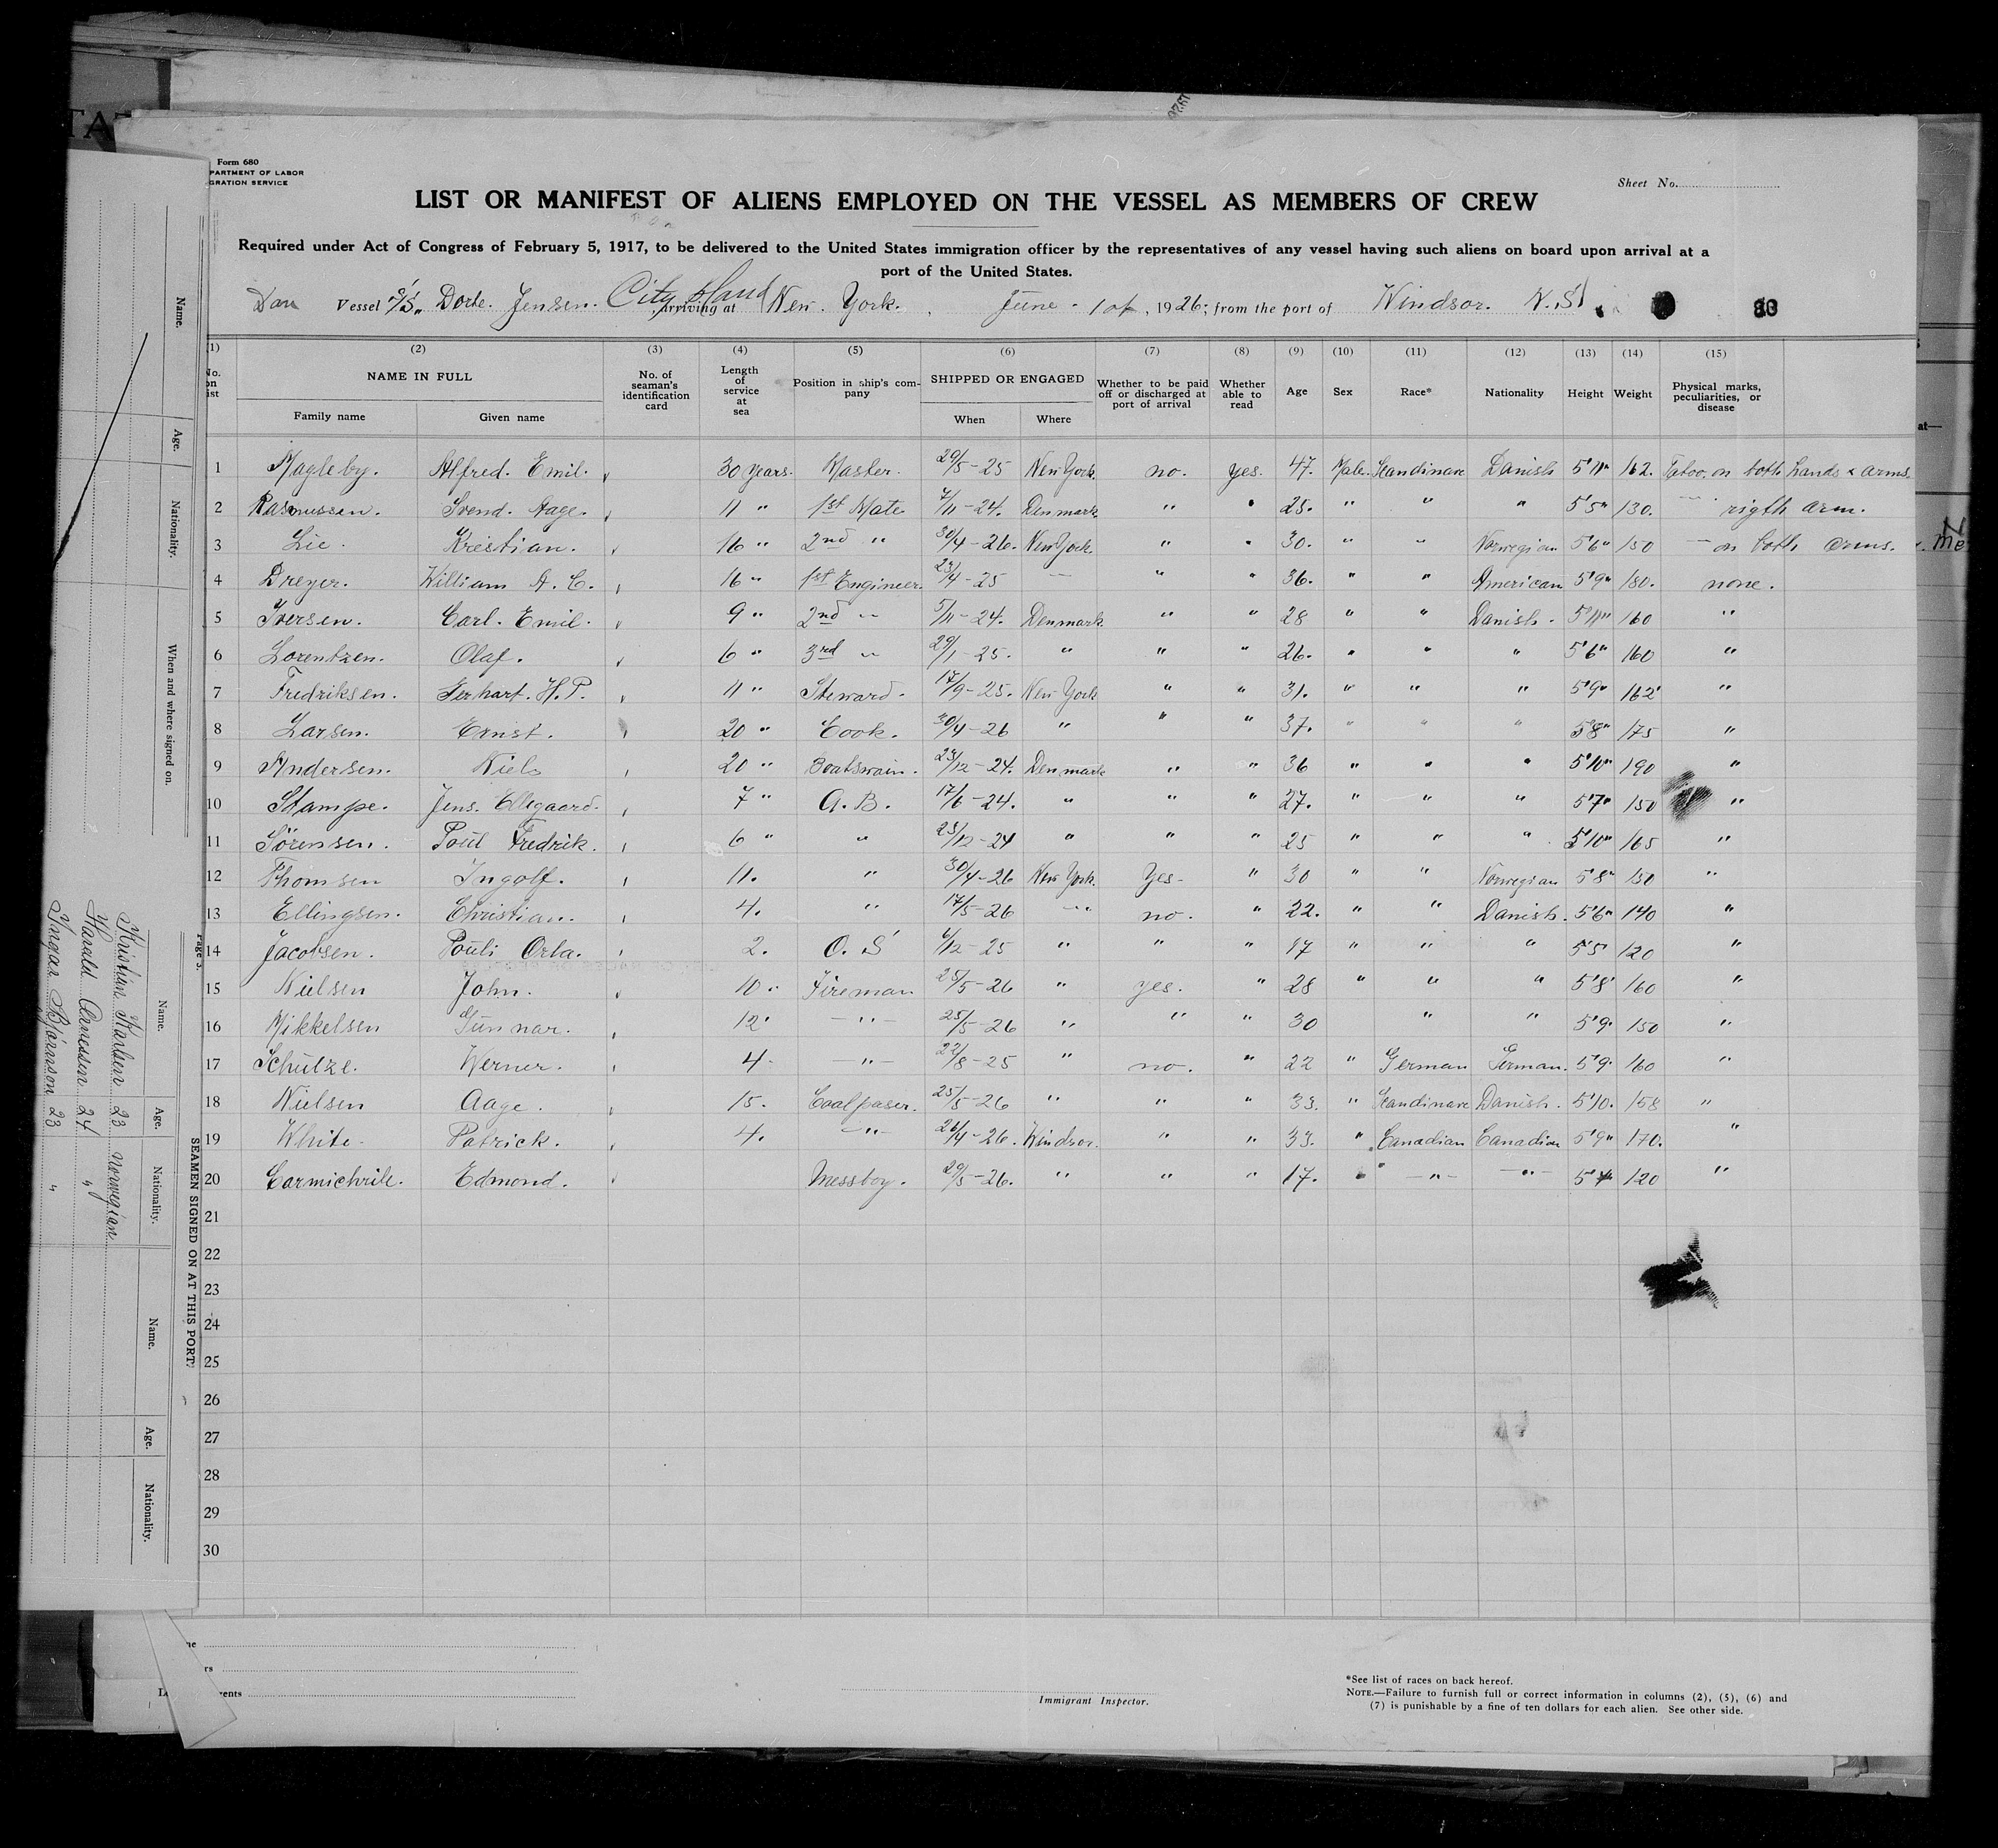 Form 680
PARTMENT OF LABOR
GRATION SERVICE
Sheet No.
LIST OR MANIFEST OF ALIENS EMPLOYED ON THE VESSEL AS MEMBERS OF CREW
Required under Act of Congress of February 5, 1917, to be delivered to the United States immigration officer by the representatives of any vessel having such aliens on board upon arrival at a
port of the United States.
Dan Vessel S/S. Dorte. Jensen. City Island arriving at New. York. June. 1st, 1926; from the port of Windsor. N.S.
(1) (2) (3) (4) (5) (6) (7) (8) (9) (10) (11) (12) (13) (14) (15)
No. on ist NAME IN FULL Family name Given name No. of seaman's identification card Length of service at sea Position in ship's company SHIPPED OR ENGAGED When Where Whether to be paid off or discharged at port of arrival Whether able to read Age Sex Race* Nationality Height Weight Physical marks, peculiarities, or disease
1 Magleby. Alfred. Emil. 30 years. Master. 29/5-25 New York. no. yes. 47. Male. Scandinave Danish 5'11" 162. Tatoo. on both hands & arms.
2 Rasmussen. Svend. Aage. 11 " 1st Mate 7/11-24. Denmark. " " 25. " " " 5'5" 130. " rigth arm.
3 Lie. Kristian. 16 " 2nd " 30/4-26. New York. " " 30. " " Norwegian 5'6" 150 — on both arms.
4 Dreyer. William A. C. 16 " 1st Engineer. 23/4-25 — " " 36. " " American 5'9" 180. none.
5 Iversen. Carl. Emil. 9 " 2nd " 5/11-24. Denmark " " 28 " " Danish. 5'11" 160 "
6 Lorentzen. Olaf. 6 " 3rd " 29/1-25. " " " 26. " " " 5'6" 160 "
7 Fredriksen. Gerhart. H.P. 11 " Steward. 17/9-25. New York " " 31. " " " 5'9" 162 "
8 Larsen. Ernst. 20 " Cook. 30/4-26 " " " 37. " " " 5'8" 175 "
9 Andersen. Niels 20 " Boatswain. 23/12-24. Denmark " " 36 " " " 5'10" 190 "
10 Stampe. Jens. Ellegaard. 7 " A.B. 17/6-24. " " " 27. " " " 5'7" 150 "
11 Sörensen. Poul Fredrik. 6 " " 23/12-24 " " " 25 " " " 5'10" 165 "
12 Thomsen Ingolf. 11. " 30/4-26 New York. Yes- " 30 " " Norwegian 5'8" 150 "
13 Ellingsen. Christian. 4. " 17/5-26 " no. " 22. " " Danish. 5'6" 140 "
14 Jacobsen. Pouli Orla. 2. O. S 6/12-25 " " " 17 " " " 5'5" 120 "
15 Nielsen John. 10. Fireman 25/5-26 " yes. " 28 " " " 5'8" 160 "
16 Mikkelsen Gunnar. 12. —"— 25/5-26 " " " 30 " " 5'9. 150 "
17 Schutze. Werner. 4. —"— 22/8-25 " no. " 22 " German German. 5'9. 160 "
18 Nielsen Aage. 15. Coalpaser. 25/5-26 " " " 33. " Scandinave Danish. 5'10. 158 "
19 White. Patrick. 4. —"— 26/4-26. Windsor. " " 33. " Canadian Canadian 5'9" 170. "
20 Carmichrile. Edmond. Messboy. 29/5-26. " " " 17. " —"— —"— 5'4" 120 "
21
22
23
24
25
26
27
28
29
30
Immigrant Inspector.
*See list of races on back hereof.
NOTE.—Failure to furnish full or correct information in columns (2), (5), (6) and
(7) is punishable by a fine of ten dollars for each alien. See other side.
Name. Age. Nationality. When and where signed on.
Page 3.
SEAMEN SIGNED ON AT THIS PORT
Name. Age. Nationality.
Kristian Karlsen 23 Norwegian
Harald Arnessen 24 "
Ingvar Bjórnson 23 "
Name. Age. Nationality.